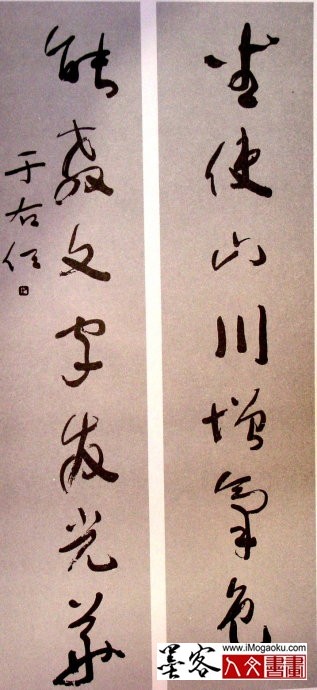 坐使山川增氣色
能教文字发光華
于右任
www.iMogaoku.com
墨客
人文書畫